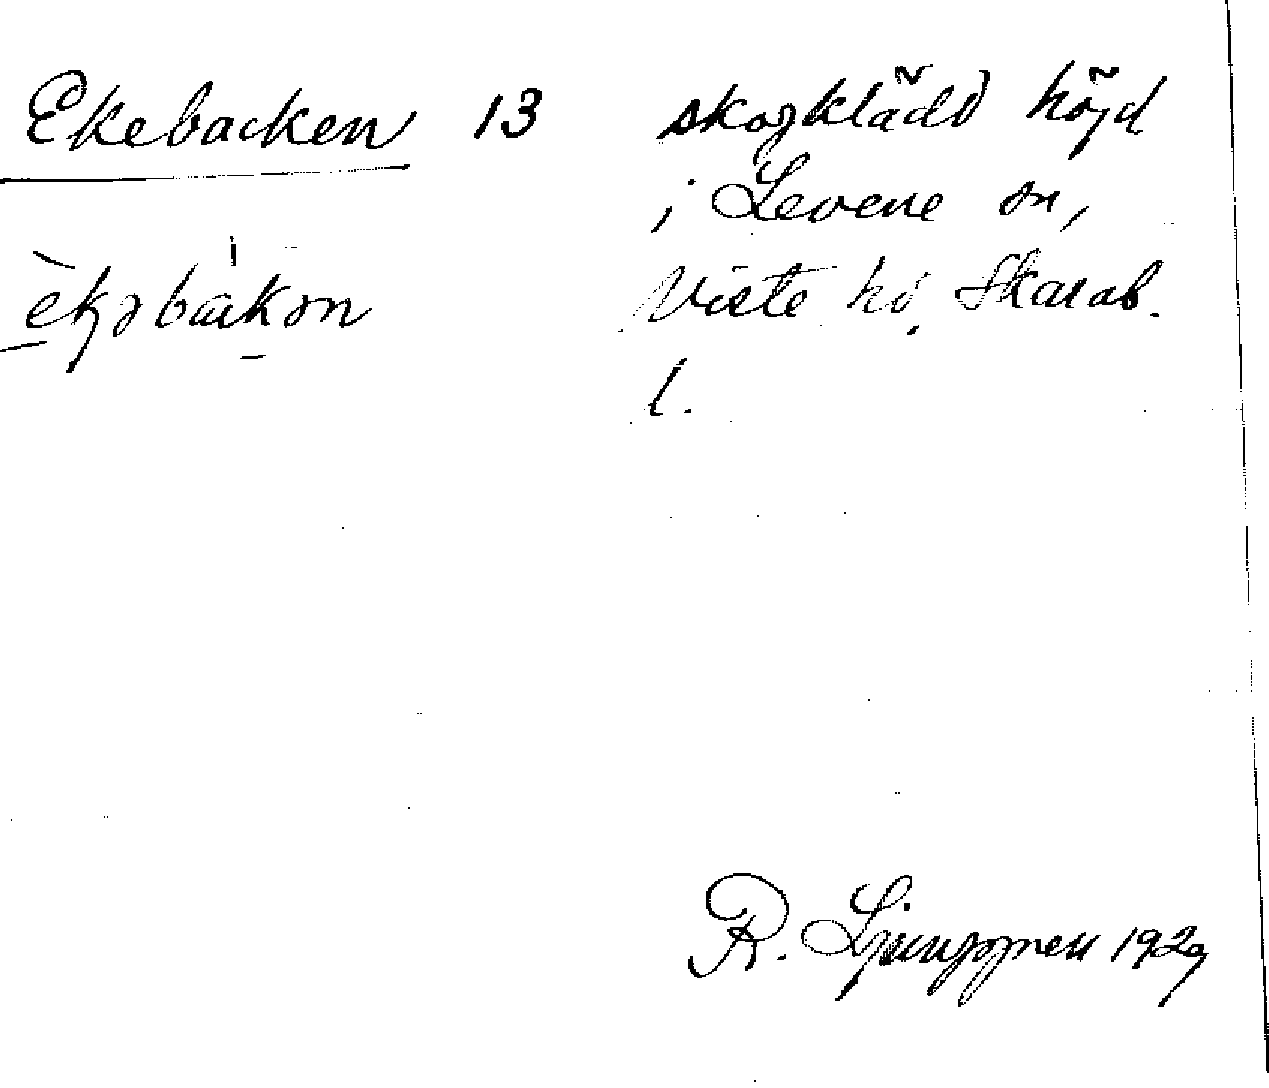 Ekebacken 13
skogklädd höjd
i Levene sn,
Viste hd, Skarab.
l.
èkəbákən
R. Ljunggren 1929